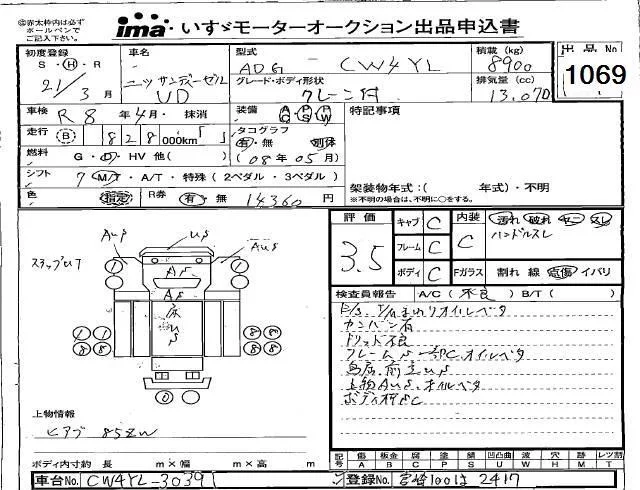 ◎赤太枠内は必ず
ボールペンで
ご記入下さい。
ima いすゞモーターオークション出品申込書
初度登録
S・H・R
21/3月
車名
ニッサンディーゼル
UD
型式
ADG - CW4YL
グレード・ボディ形状
クレーン付
積載 (kg)
8900
排気量 (cc)
13.070
出品No.
1069
車検 R8年4月・抹消
装備 AC PS PW
特記事項
走行 B 828,000km
タコグラフ
有・無 別体
(08年05月)
燃料 G・D・HV 他( )
シフト 7 M/T・A/T・特殊(2ペダル・3ペダル)
架装物年式:( 年式)・不明
※不明の場合は、不明に○をする。
色 指定
R券 有・無 14360円
評価
3.5
キャブ C
フレーム C
ボディ C
内装 C
汚れ 破れ
ハンドルスレ
Fガラス 割れ 線 点傷 イバリ
AuS US AuS
1 1
AS
AS
US
8 8 8 8
0
検査員報告 A/C(不良) B/T( )
カンバン有
フレームS一部C.オイルベタ
上物AuS.オイルベタ
上物情報
ヒアブ 85ZW
ボディ内寸 約 長 m×幅 m×高 m
記号 傷 板金 腐 塗 錆 凹凸曲 波 穴 跡 レツ割
A B C P S U W H M T
車台No. CW4YL-30391
登録No. 宮崎100は2417